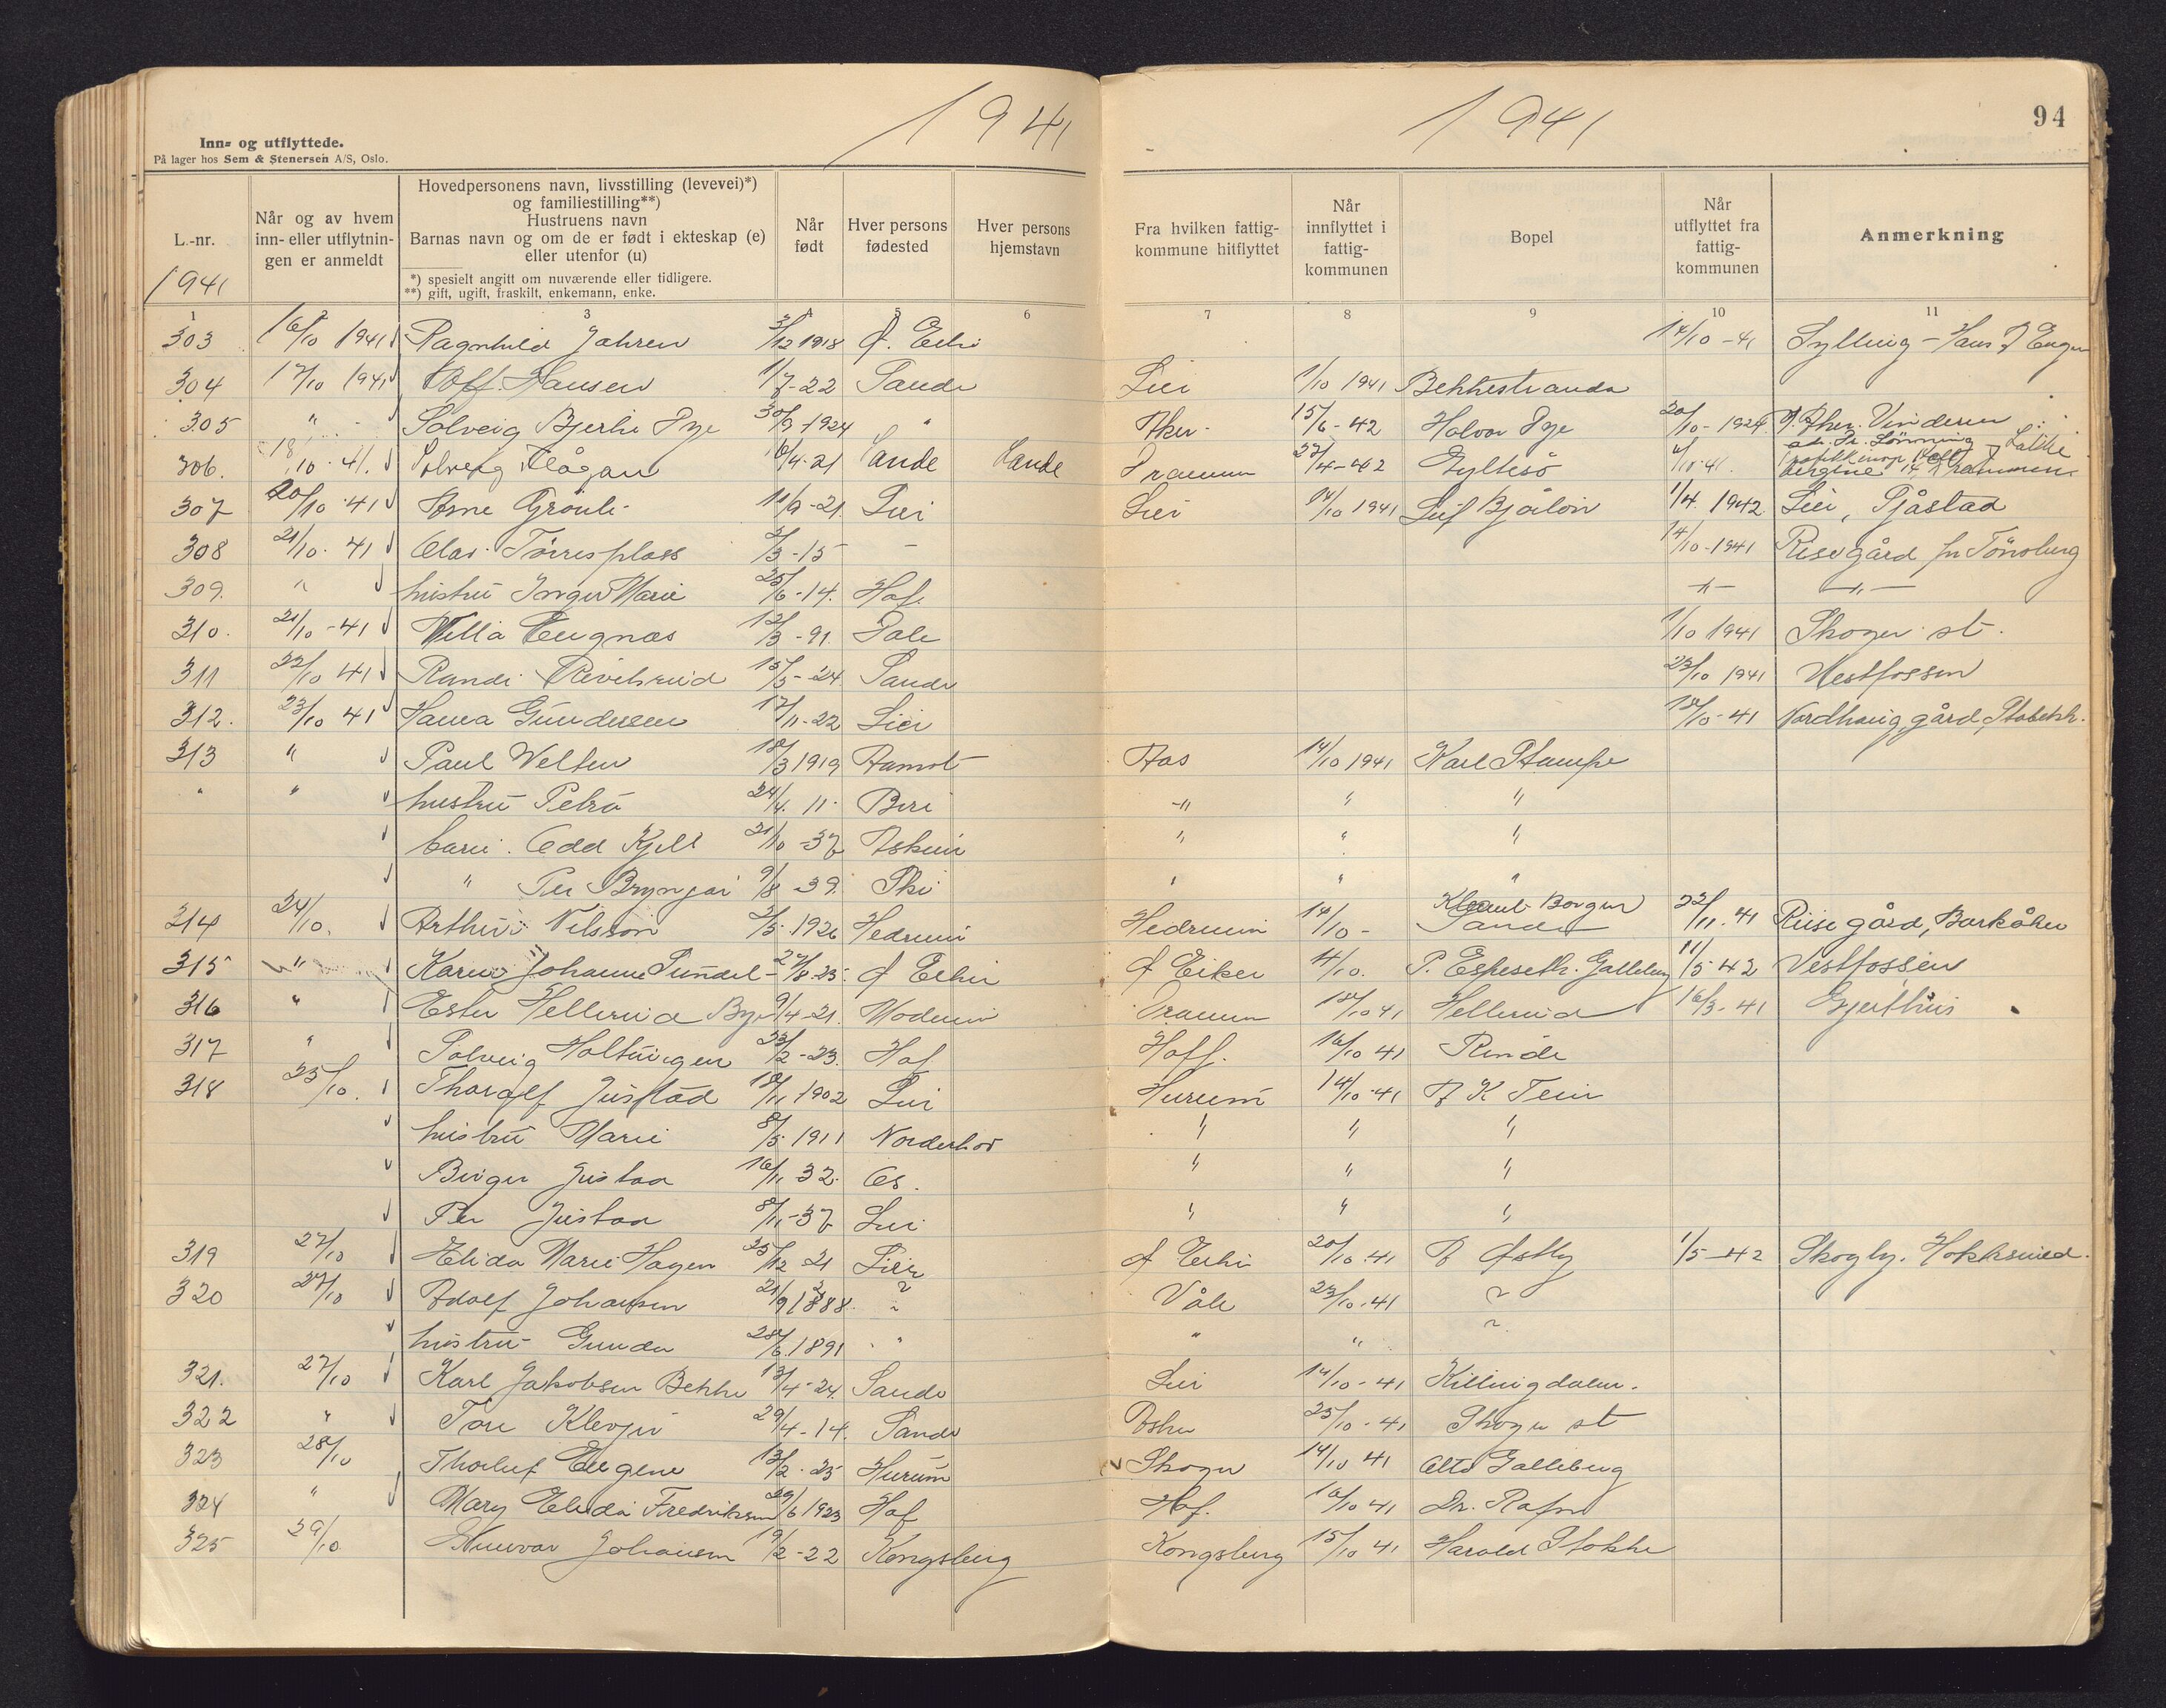 1941
1941
94
Inn- og utflyttede.
På lager hos Sem & Stenersen A/S, Oslo.
L.-nr.
1941
Når og av hvem inn- eller utflytnin-gen er anmeldt
Hovedpersonens navn, livsstilling (levevei)*) og familiestilling**)
Hustruens navn
Barnas navn og om de er født i ekteskap (e) eller utenfor (u)
*) spesielt angitt om nuværende eller tidligere.
**) gift, ugift, fraskilt, enkemann, enke.
Når født
Hver persons fødested
Hver persons hjemstavn
Fra hvilken fattig-kommune hitflyttet
Når innflyttet i fattig-kommunen
Bopel
Når utflyttet fra fattig-kommunen
Anmerkning
1 3 5 6 7 8 9 10 11
303 16/10 1941 Ragnhild Jahren 3/12 1918 Ø. Eiker 14/10 -41 Sylling - Hans
304 17/10 1941 Hansen 1/7-22 Sande Lier 1/10 1941 Bekkestranda
305 " Solveig Bjerke Dye 30/9 1924 " Aker 15/6-42 Halvor Dye 20/10-1924 Aker. Vinderen
306. 18/10.41. Solveig 16/4-21 Sande Sande Drammen 27/4-42 Gyltesö Drammen
307 20/10.41 Arne Grönli 11/9-21. Lier Lier 14/10 1941 Leif 1/4. 1942 Lier, Tjåstad
308 21/10.41 Olav Tørresplass 2/3-15 - 14/10-1941 Rise gård pr Tönsberg
309. " hustru Inger Marie 25/6-14. Hof. -"- -"-
310. 21/10-41 Engnæs 12/3-91. 1/10 1941 Skoger st.
311 22/10 41 Randi 15/5-24. Sande 23/10 1941 Vestfossen
312. 23/10 41 Hanna Gundersen 17/11-22 Lier -41 Nordhaug gård, Stabekk.
313 " Paul Welten 18/3 1919 Aas 14/10 1941 Karl Stampe
" " hustru Petra 24/4. 11. Biri -"- " "
barn. Odd Kjell 21/10-37 Askim " " "
" Per Bryngar 9/8-39. Ski " " "
314 24/10. Arthur Nilsson 2/5. 1926 Hedrum Hedrum 14/10- Borgen Sande 22/11.41 Riise gård, Barkåker
315 " Karen Johanne Sundel - 27/8-25. Ø Eiker Ø Eiker 4/10. P. Espeseth. Galleberg 11/5 42 Vestfossen
316 " Ester Hellerud 9/4-21. Modum Drammen 18/10 41 Hellerud 16/3-41 Gjerthus
317 " Solveig 23/2-23. Hof Hoff. 16/10 41
318 25/10. Thoralf Justad 18/11 1902 Lier Hurum 14/10-41
hustru Marie 8/5. 1911 Norderhov " " "
Birger Justad 16/11 32. Os. " " "
Per Justad 8/11-37 Lier " " "
319 27/10 Elida Marie Hagen 25/12 21 Lier Ø Eiker 20/10.41 Østby 1/5-42 Skogly. Hokksund.
320 27/10 Adolf Johansen 21/9 1888. " Våle 23/10.41 "
hustru Gunda 28/6. 1891 " " " "
321. 27/10 Karl Jakobsen Bekke 13/4-24. Sande Lier 14/10-41 Killingdalen.
322 " Tore 29/4-14. Sande Asker 25/10-41 Skoger st
323 28/10 13/2-25 Hurum Skoger 14/10 41 Otto Galleberg
324 " Mary Elida Fredriksen 29/6 1923 Hof Hof. 16/10 41 Dr. Rafn
325 29/10 Johansen 19/2-22 Kongsberg Kongsberg 15/10 41 Harald Stokke